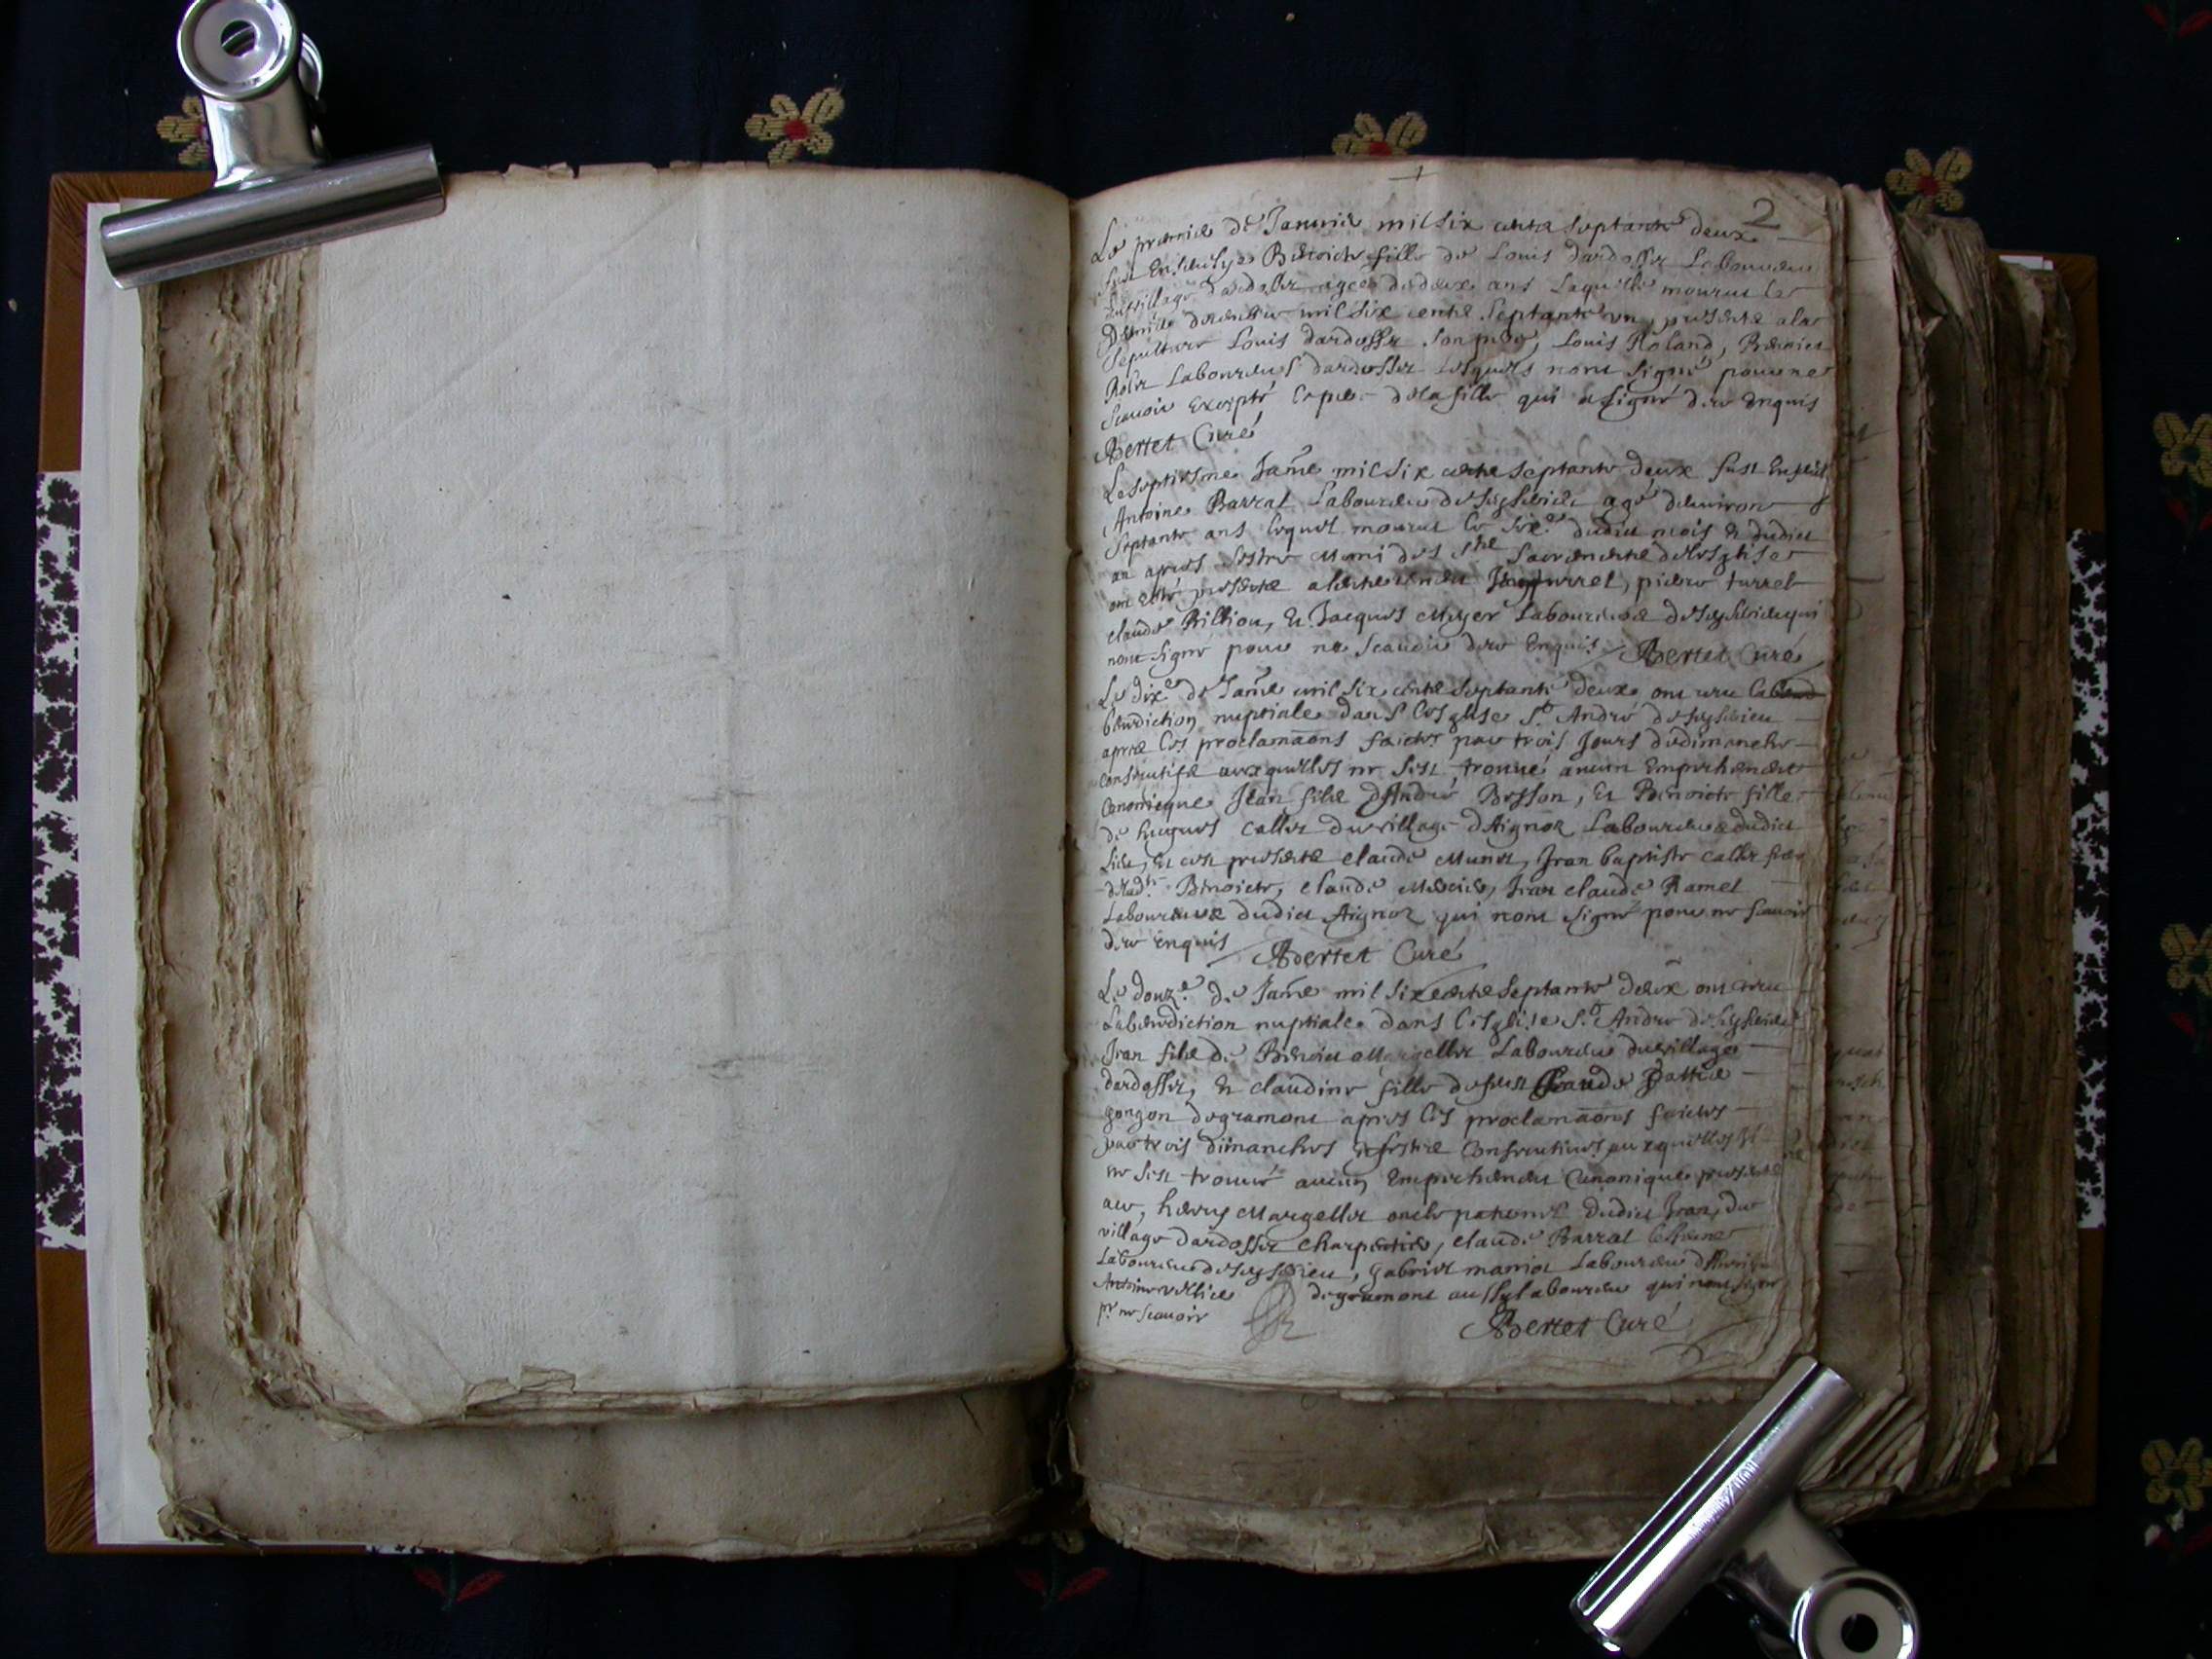 2
Le premier de Januier mil six centz septante deux
fust Enseuelye Benoiste fille de Louis dardosset Laboureur
du village dardosset agee de deux ans Laquelle mourut le
dernier decembre mil six centz septante un, presentz a la
sepulture Louis dardosset son pere, Louis Roland, Benoict
Laboureurs dardosset lesquels nont signé pour ne
scauoir Excepté le pere de la fille qui a signé de ce enquis
Bertet Curé
Le septiesme Janr̃e mil six centz septante deux fust Enseueli
Antoine Barral Laboureur de agé denuiron
septante ans lequel mourut le six.e dudict mois et dudict
an apres estre Muni des Stz Sacrementz de lesglise
ont esté presentz a lenterrement turrel, pierre turrel
claude Billion, Et Jacques Meyer Laboureurs de qui
nont signé pour ne scauoir de ce Enquis Bertet Curé
Le dix.e de Janr̃e mil six centz septante deux ont receu la
benediction nuptiale dans lesglise St André de
apres les proclamãons faictes par trois Jours de dimanche
consecutifz auxquelles ne sest trouué aucun Empechement
Canonique Jean filz dAndré Besson, Et Benoiste fille
de hugues callet du village dAignoz Laboureurs dudict
lieu, Et ces presentz claude Munet, Jean baptiste callet frere
de lad.te Benoiste, claude Mercier, Jean claude Ramel
Laboureurs dudict Aignoz qui nont signé pour ne scauoir
de ce enquis Bertet Curé
Le douz.e de Janr̃e mil six centz septante deux ont receu
La benediction nuptiale dans lesglise St André de
Jean filz de Benoict Margellet Laboureur du village
dardosset, Et claudine fille de feu Claude
gongon de gramont apres les proclamãons faictes
par trois dimanches et festes Consecutiues auxquelles
ne sest trouué aucun Empechement Canonique presentz
henry Margellet oncle paternel dudict Jean, du
village dardosset charpentier, claude Barral
Laboureur de, gabriel Laboureur
Antoine de gramont aussy laboureur qui nont signé
pr ne scauoir
Bertet Curé